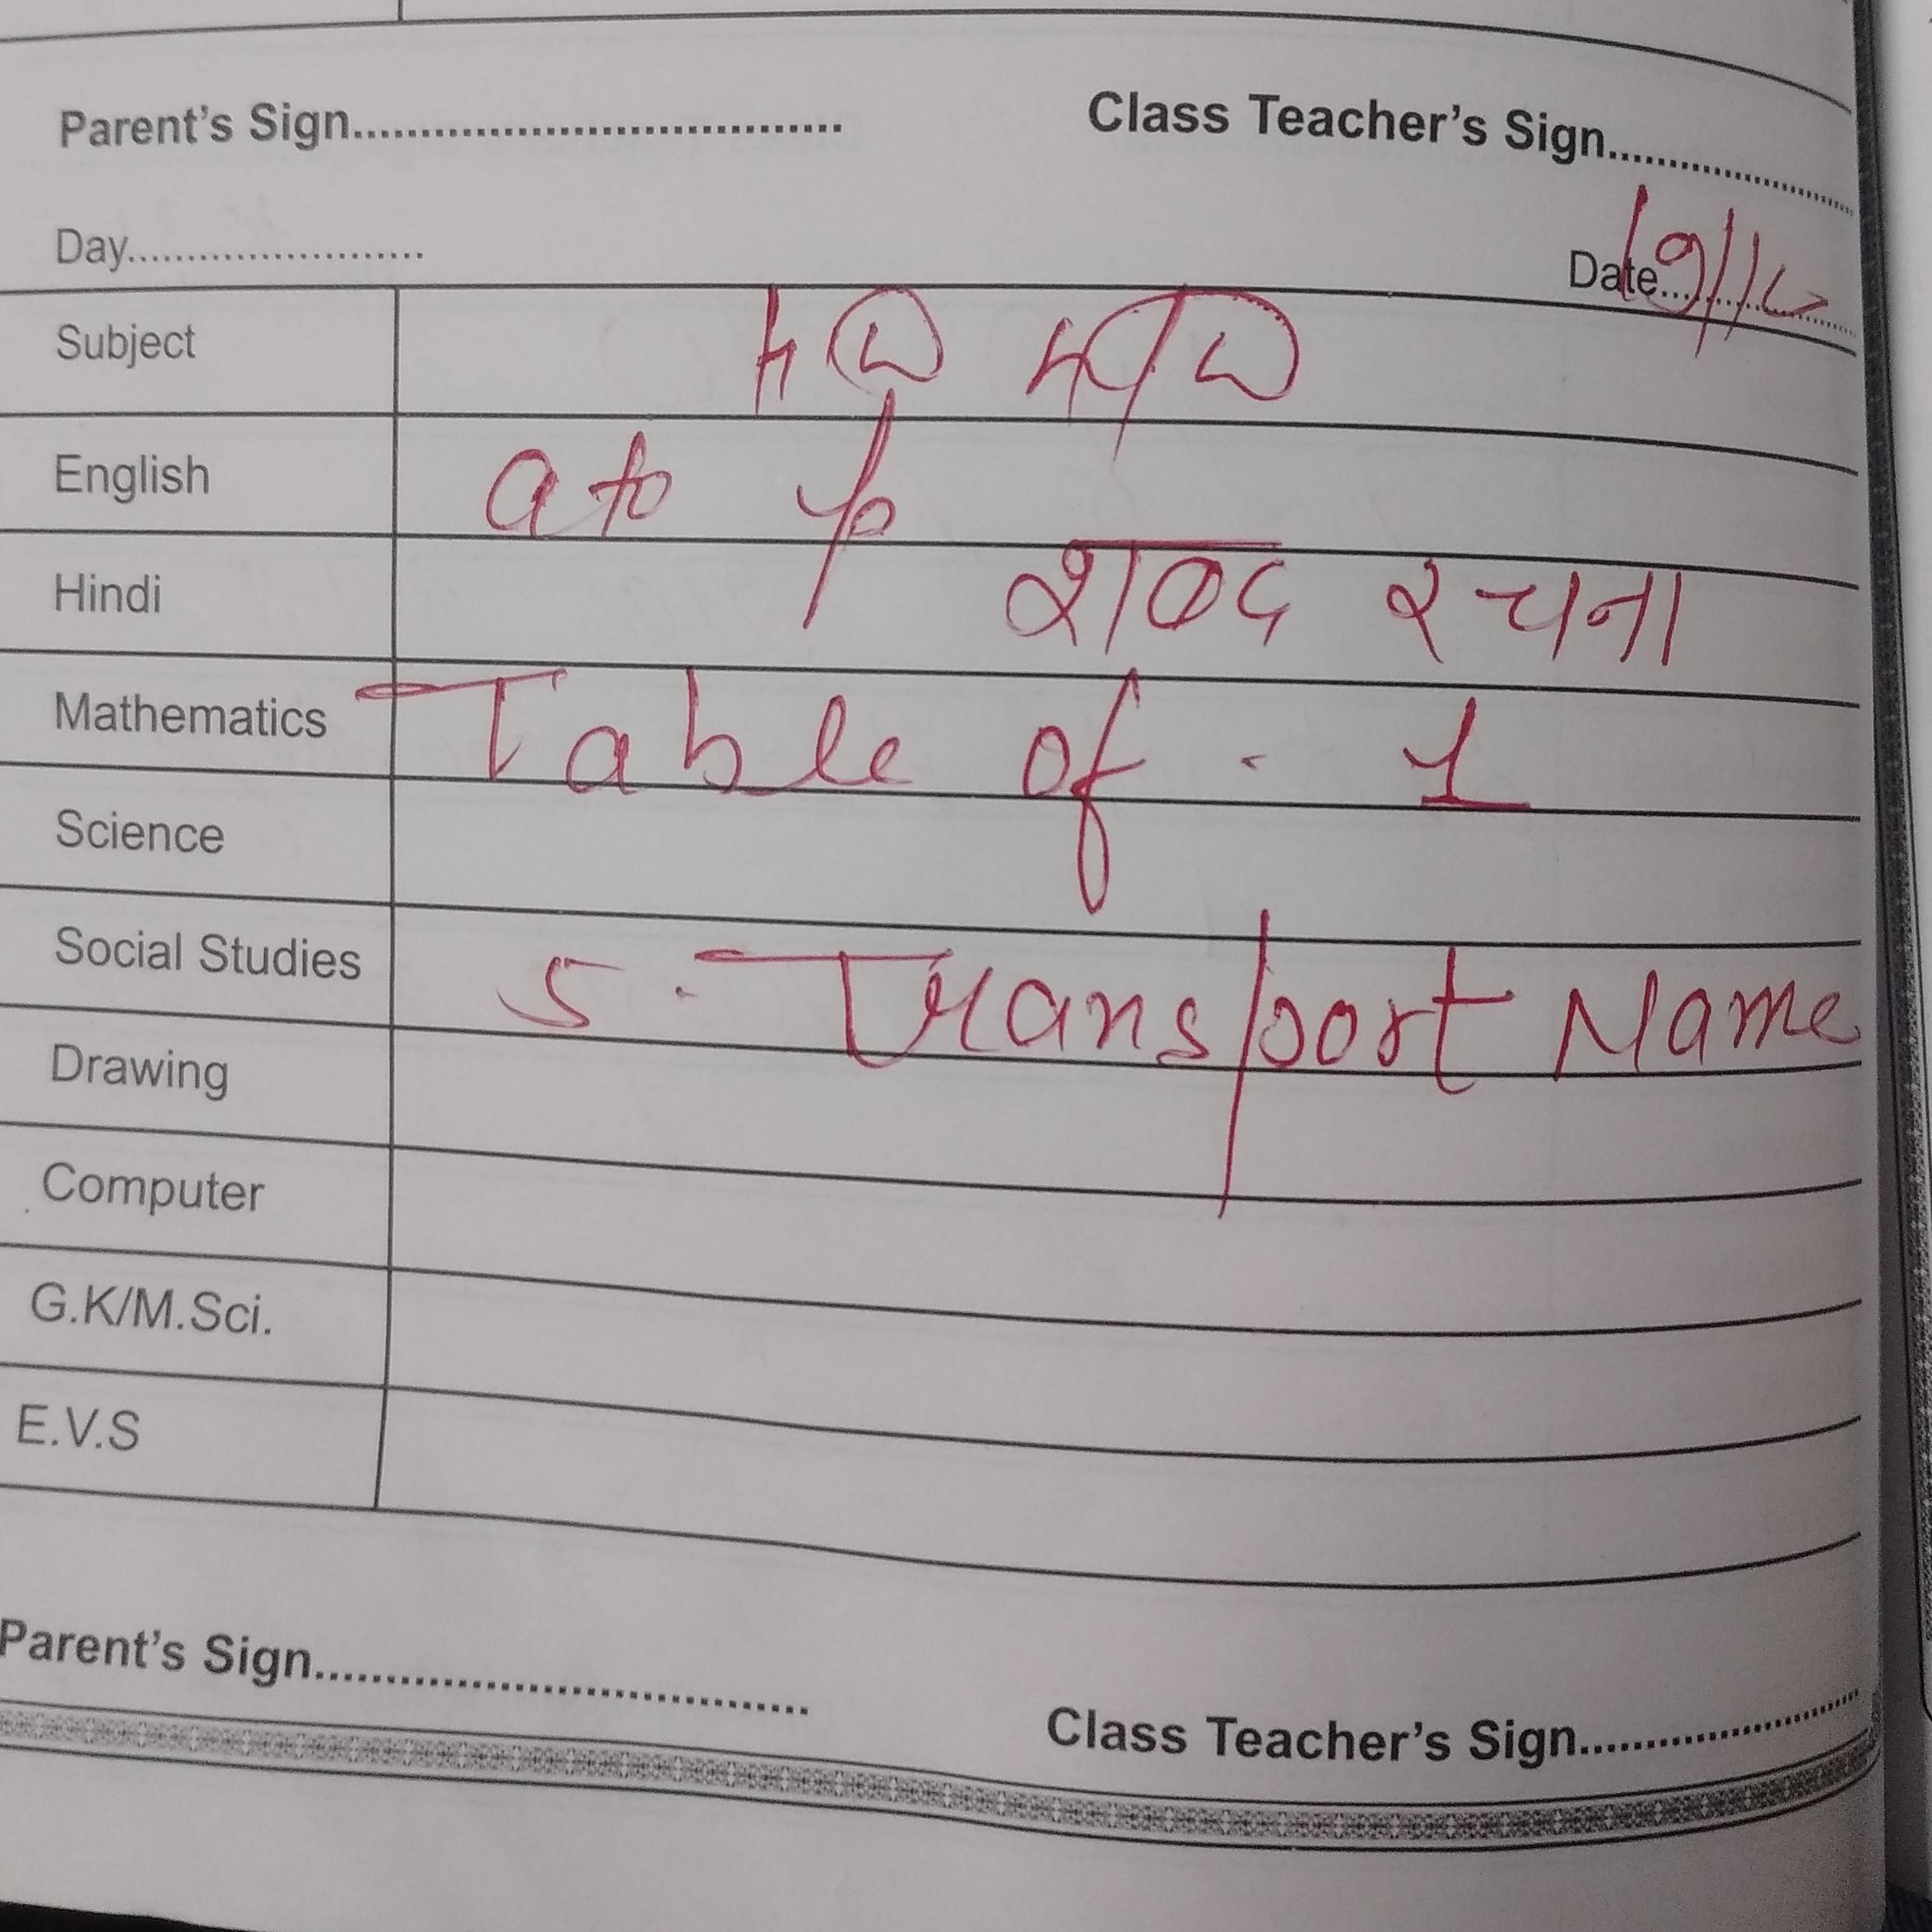 Parent's Sign.................................... Class Teacher's Sign....................
Day........................ Date..............
Subject H (W) H/W
English a to p
Hindi शब्द रचना
Mathematics Table of - 1
Science
Social Studies 5 - Transport Name
Drawing
Computer
G.K/M.Sci.
E.V.S
Parent's Sign.................................... Class Teacher's Sign....................